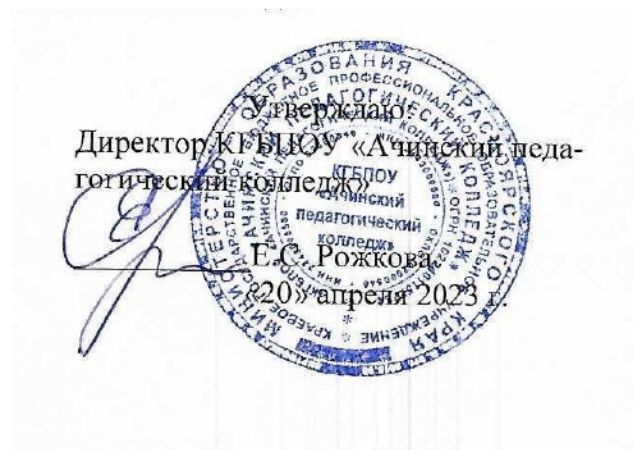 Утверждаю:
Директор КГБПОУ «Ачинский педа-
гогический колледж»
Е.С. Рожкова
«20» апреля 2023 г.
МИНИСТЕРСТВО ОБРАЗОВАНИЯ КРАСНОЯРСКОГО КРАЯ
КГБПОУ
«Ачинский
педагогический
колледж»